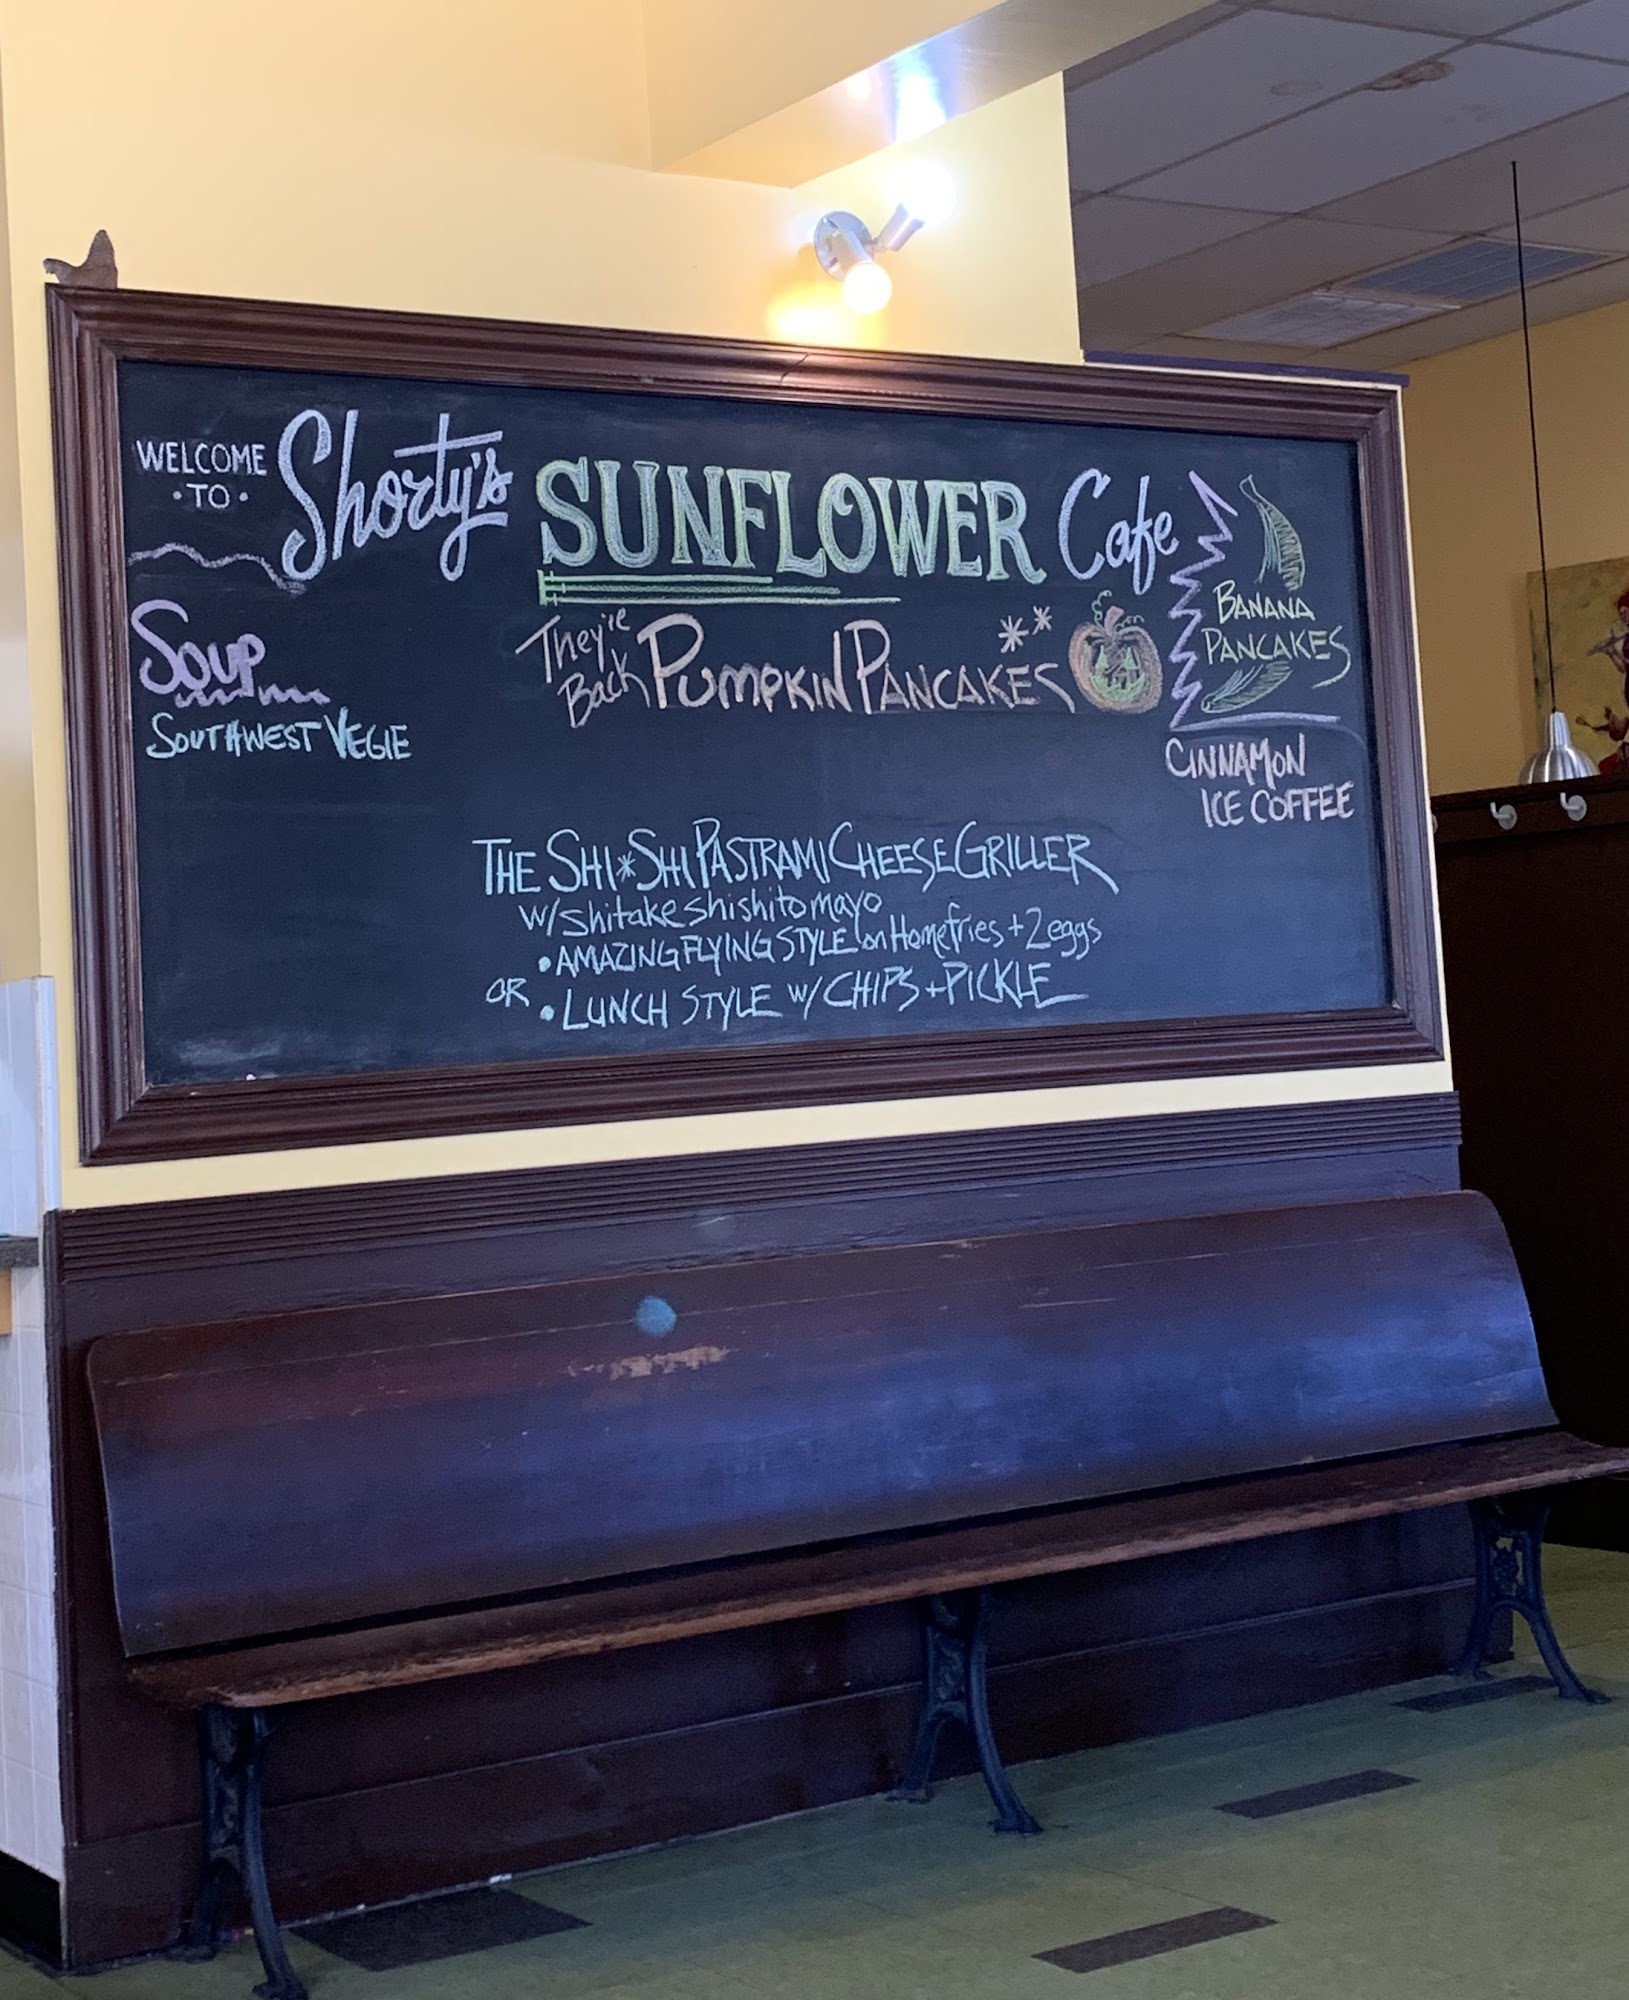 WELCOME
•TO•
Shorty's SUNFLOWER Cafe
Soup
SOUTHWEST VEGIE
They're
Back
PUMPKIN PANCAKES
BANANA
PANCAKES
CINNAMON
ICE COFFEE
THE SHI*SHI PASTRAMI CHEESE GRILLER
w/ shitake shishito mayo
• AMAZING FLYING STYLE on Homefries + 2 eggs
OR • LUNCH STYLE w/ CHIPS + PICKLE